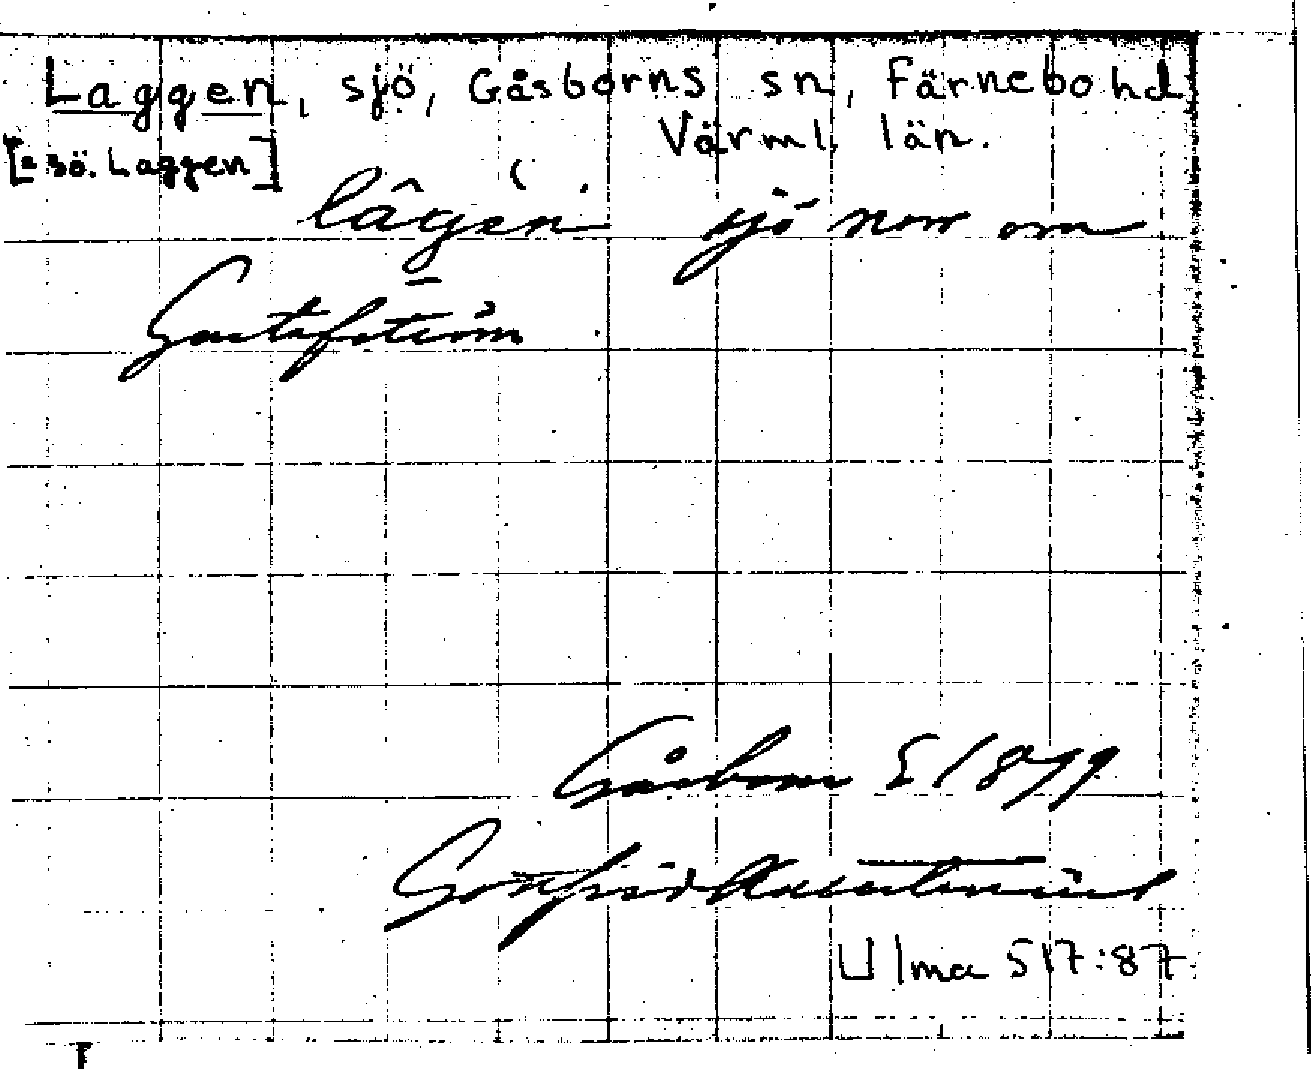 Laggen, sjö, Gåsborns sn, Färnebo hd
Värml. län.
[= sö. Laggen]
lâgen sjö norr om
Gustafström
Gåsborn 5/1879
Gottfrid Kallstenius
Ulma 517:87